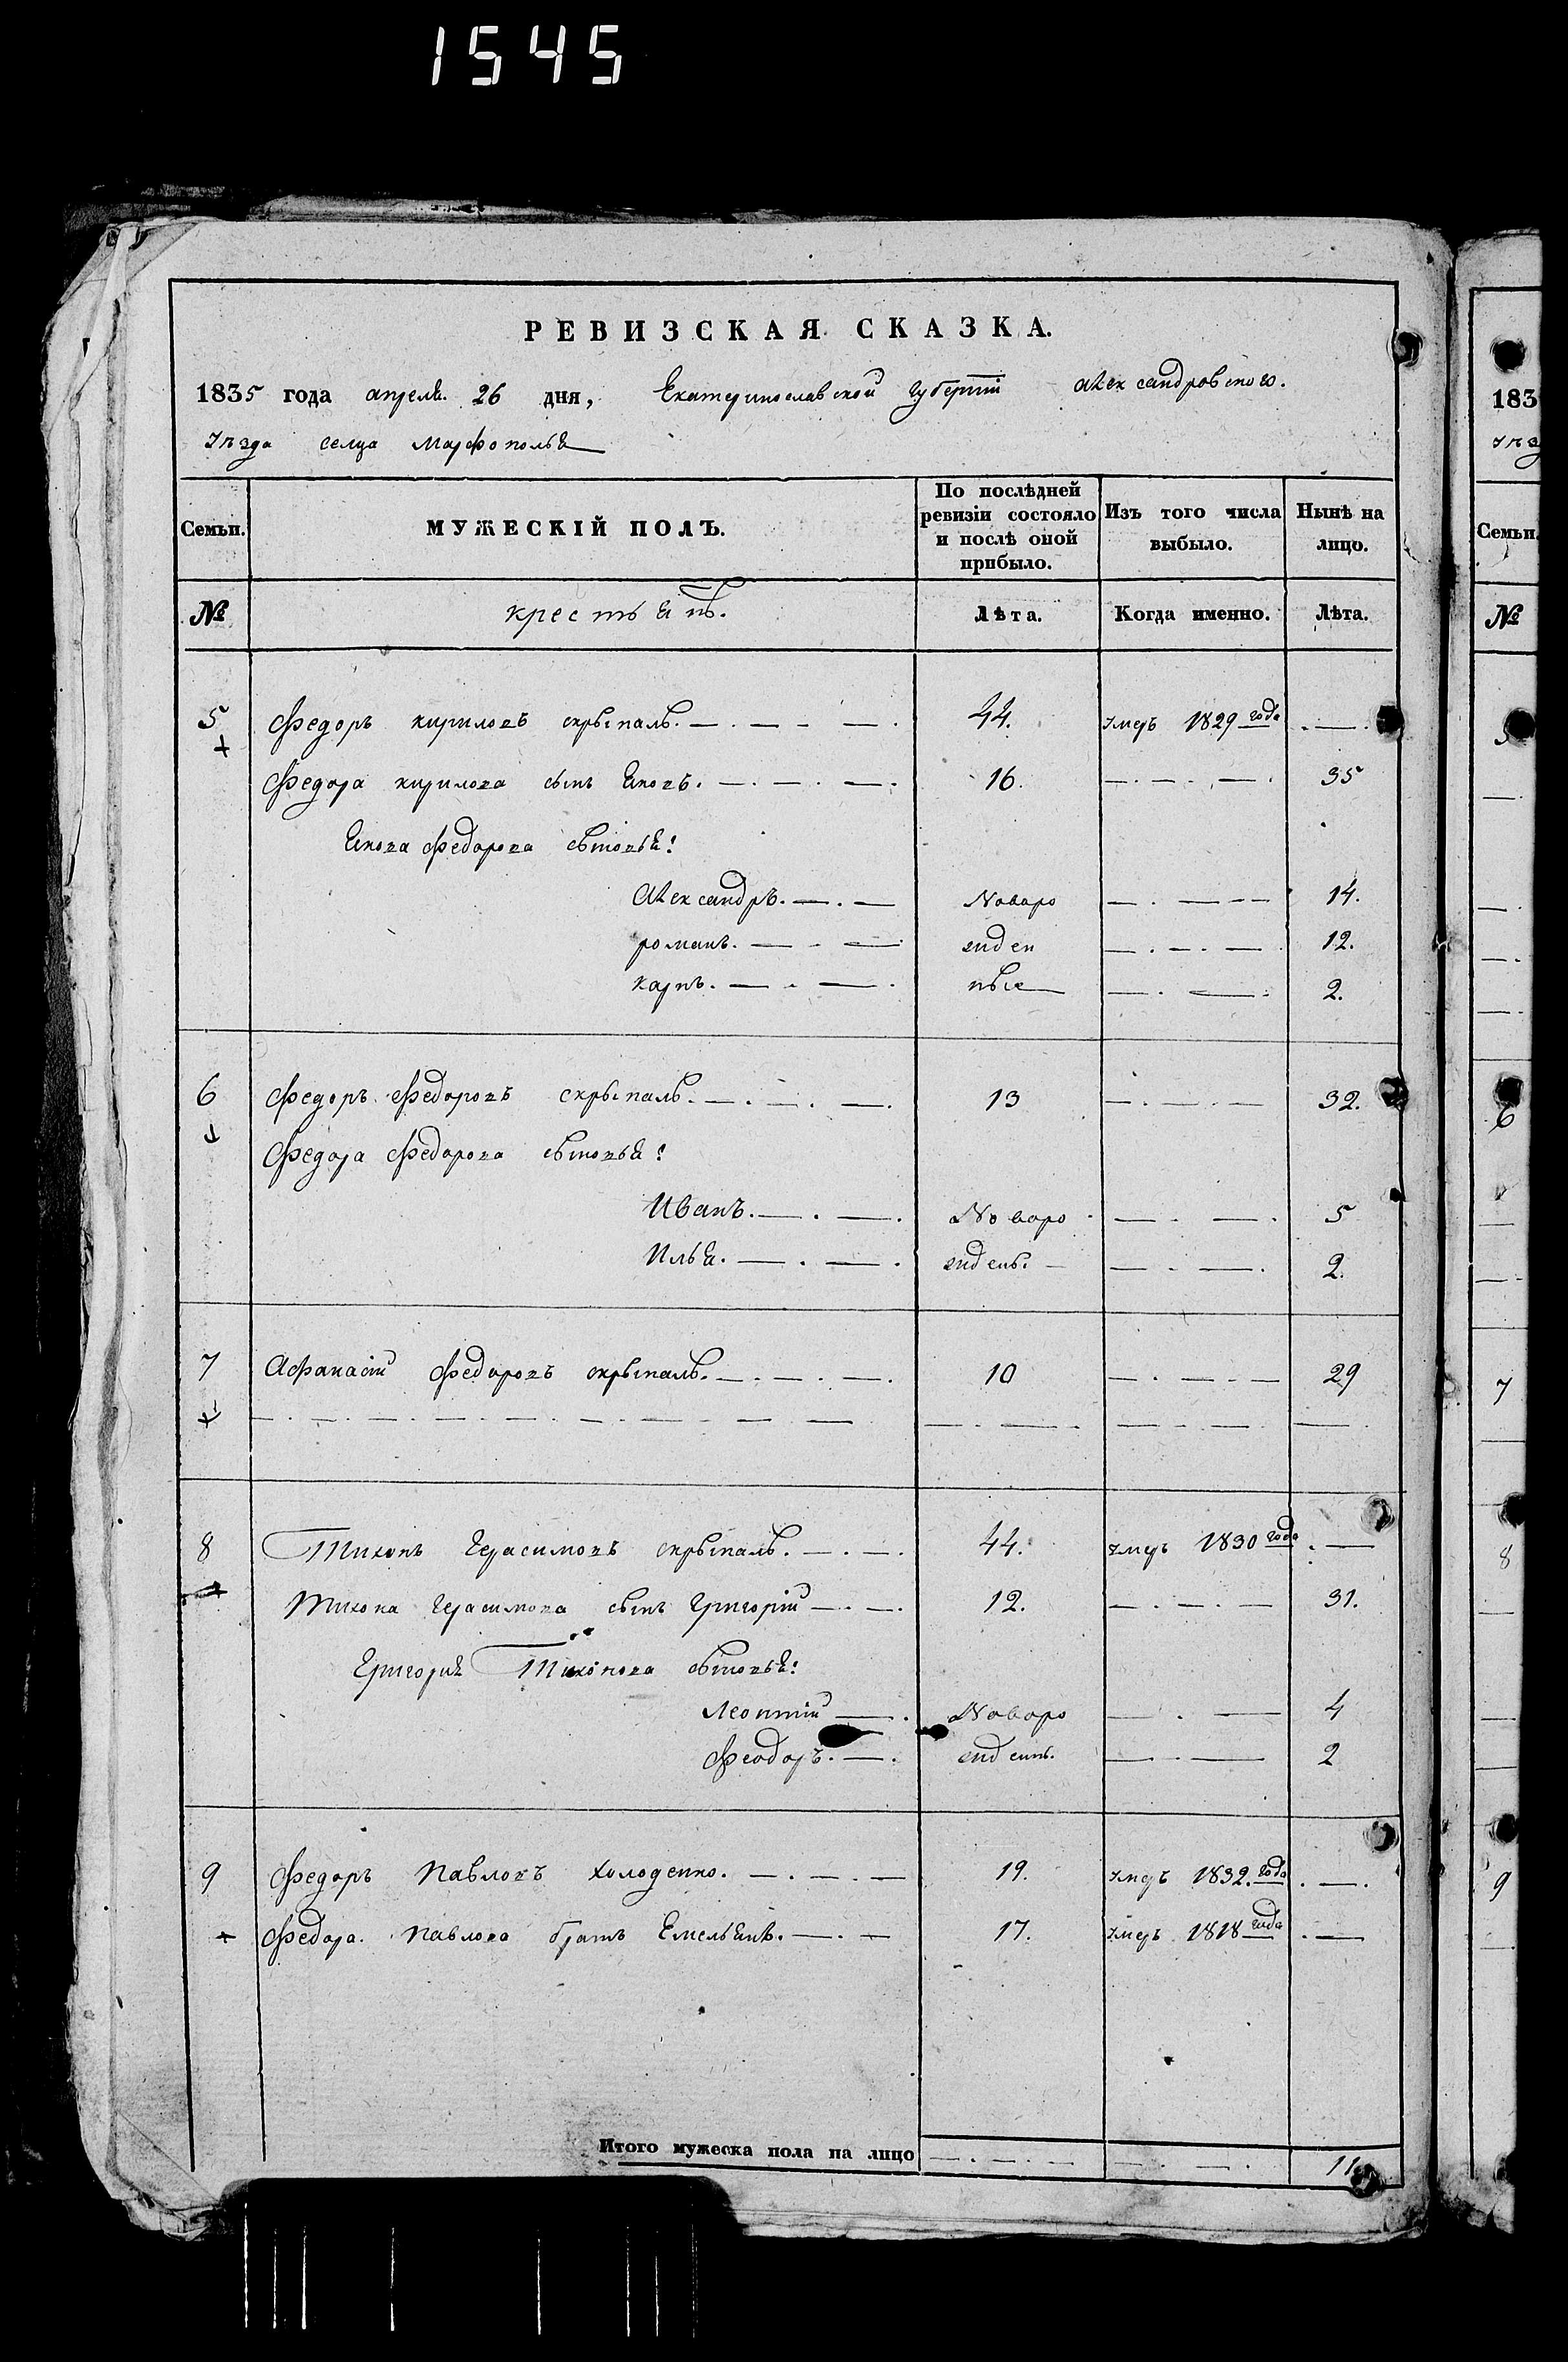 1545
РЕВИЗСКАЯ СКАЗКА.
1835 года апреля. 26 дня, Екатеринославской губерніи Александровского.
уезда селца Марфополья
Семьи. МУЖЕСКІЙ ПОЛЪ. По послѣдней ревизіи состояло и послѣ оной прибыло. Изъ того числа выбыло. Нынѣ на лицо.
№ крестьянъ. Лѣта. Когда именно. Лѣта.
5 Федоръ кириловъ скрыпаль. 44. умеръ 1829 года
Федора кирилова сынъ Яковъ. 16. 35
Якова Федорова сыновья:
Александръ. Новоро 14.
романъ. жден 12.
карпъ. ные 2.
6 Федоръ Федоровъ скрыпаль. 13 32.
Федора Федорова сыновья:
Иванъ. Новоро 5
Илья. жденъ. 2.
7 Афанасій Федоровъ скрыпаль. 10 29
8 Тихонъ Герасимовъ скрыпаль. 44. умеръ 1830 года
Тихона Герасимова сынъ Григорій 12. 31.
Григорія Тихонова сыновья:
Леонтій Новоро 4
Феодоръ. жденн. 2
9 Федоръ Павловъ Холоденко. 19. умеръ 1832. года
Федора. Павлова братъ Емельянъ. 17. умеръ 1818 года
Итого мужеска пола на лицо 11.
183
Семьи.
№
6
7
8
9